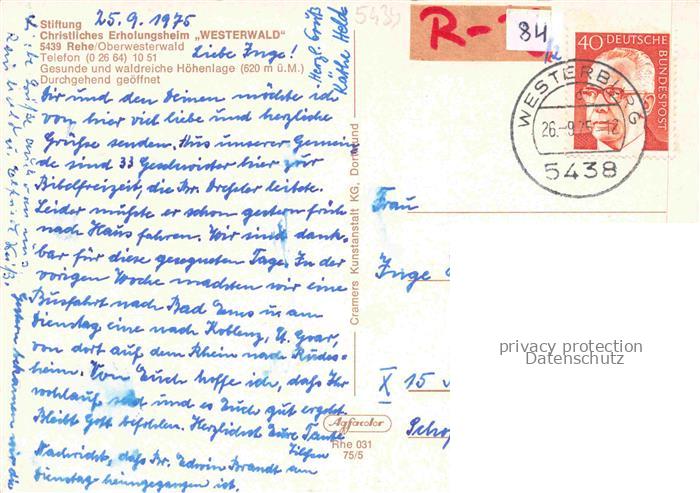 25.9.1975
Stiftung
Christliches Erholungsheim „WESTERWALD"
5439 Rehe/Oberwesterwald
Telefon (0 26 64) 10 51
Gesunde und waldreiche Höhenlage (620 m ü.M.)
Durchgehend geöffnet
Liebe Inge!
Dir und den Deinen möchte ich
von hier viel liebe und herzliche
Grüße senden. Aus unserer Gemein
de sind 33 Geschwister hier zur
Bibelfreizeit, die Br. Drechsler leitete.
Leider mußte er schon gestern früh
nach Haus fahren. Wir sind dank-
bar für diese gesegneten Tage. In der
vorigen Woche machten wir eine
Busfahrt nach Bad Ems u. am
Dienstag eine nach Koblenz, St. Goar,
von dort auf dem Rhein nach Rüdes-
heim. Von Euch hoffe ich, daß Ihr
wohlauf seid und es Euch gut ergeht.
Bleibt Gott befohlen. Herzlichst Eure Tante
Gestern bekamen wir die
Nachricht, daß Br. Edwin Brandt am
Dienstag heimgegangen ist.
Herzl. Grüß
Käthe Held
Liebe Grüße auch von uns
Cramers Kunstanstalt KG, Dortmund
Agfacolor
Rhe 031
75/5
5439
R-
84
40 DEUTSCHE
BUNDESPOST
WESTERBURG
26.-9.75-12
5438
Frau
Inge
X 15
privacy protection
Datenschutz